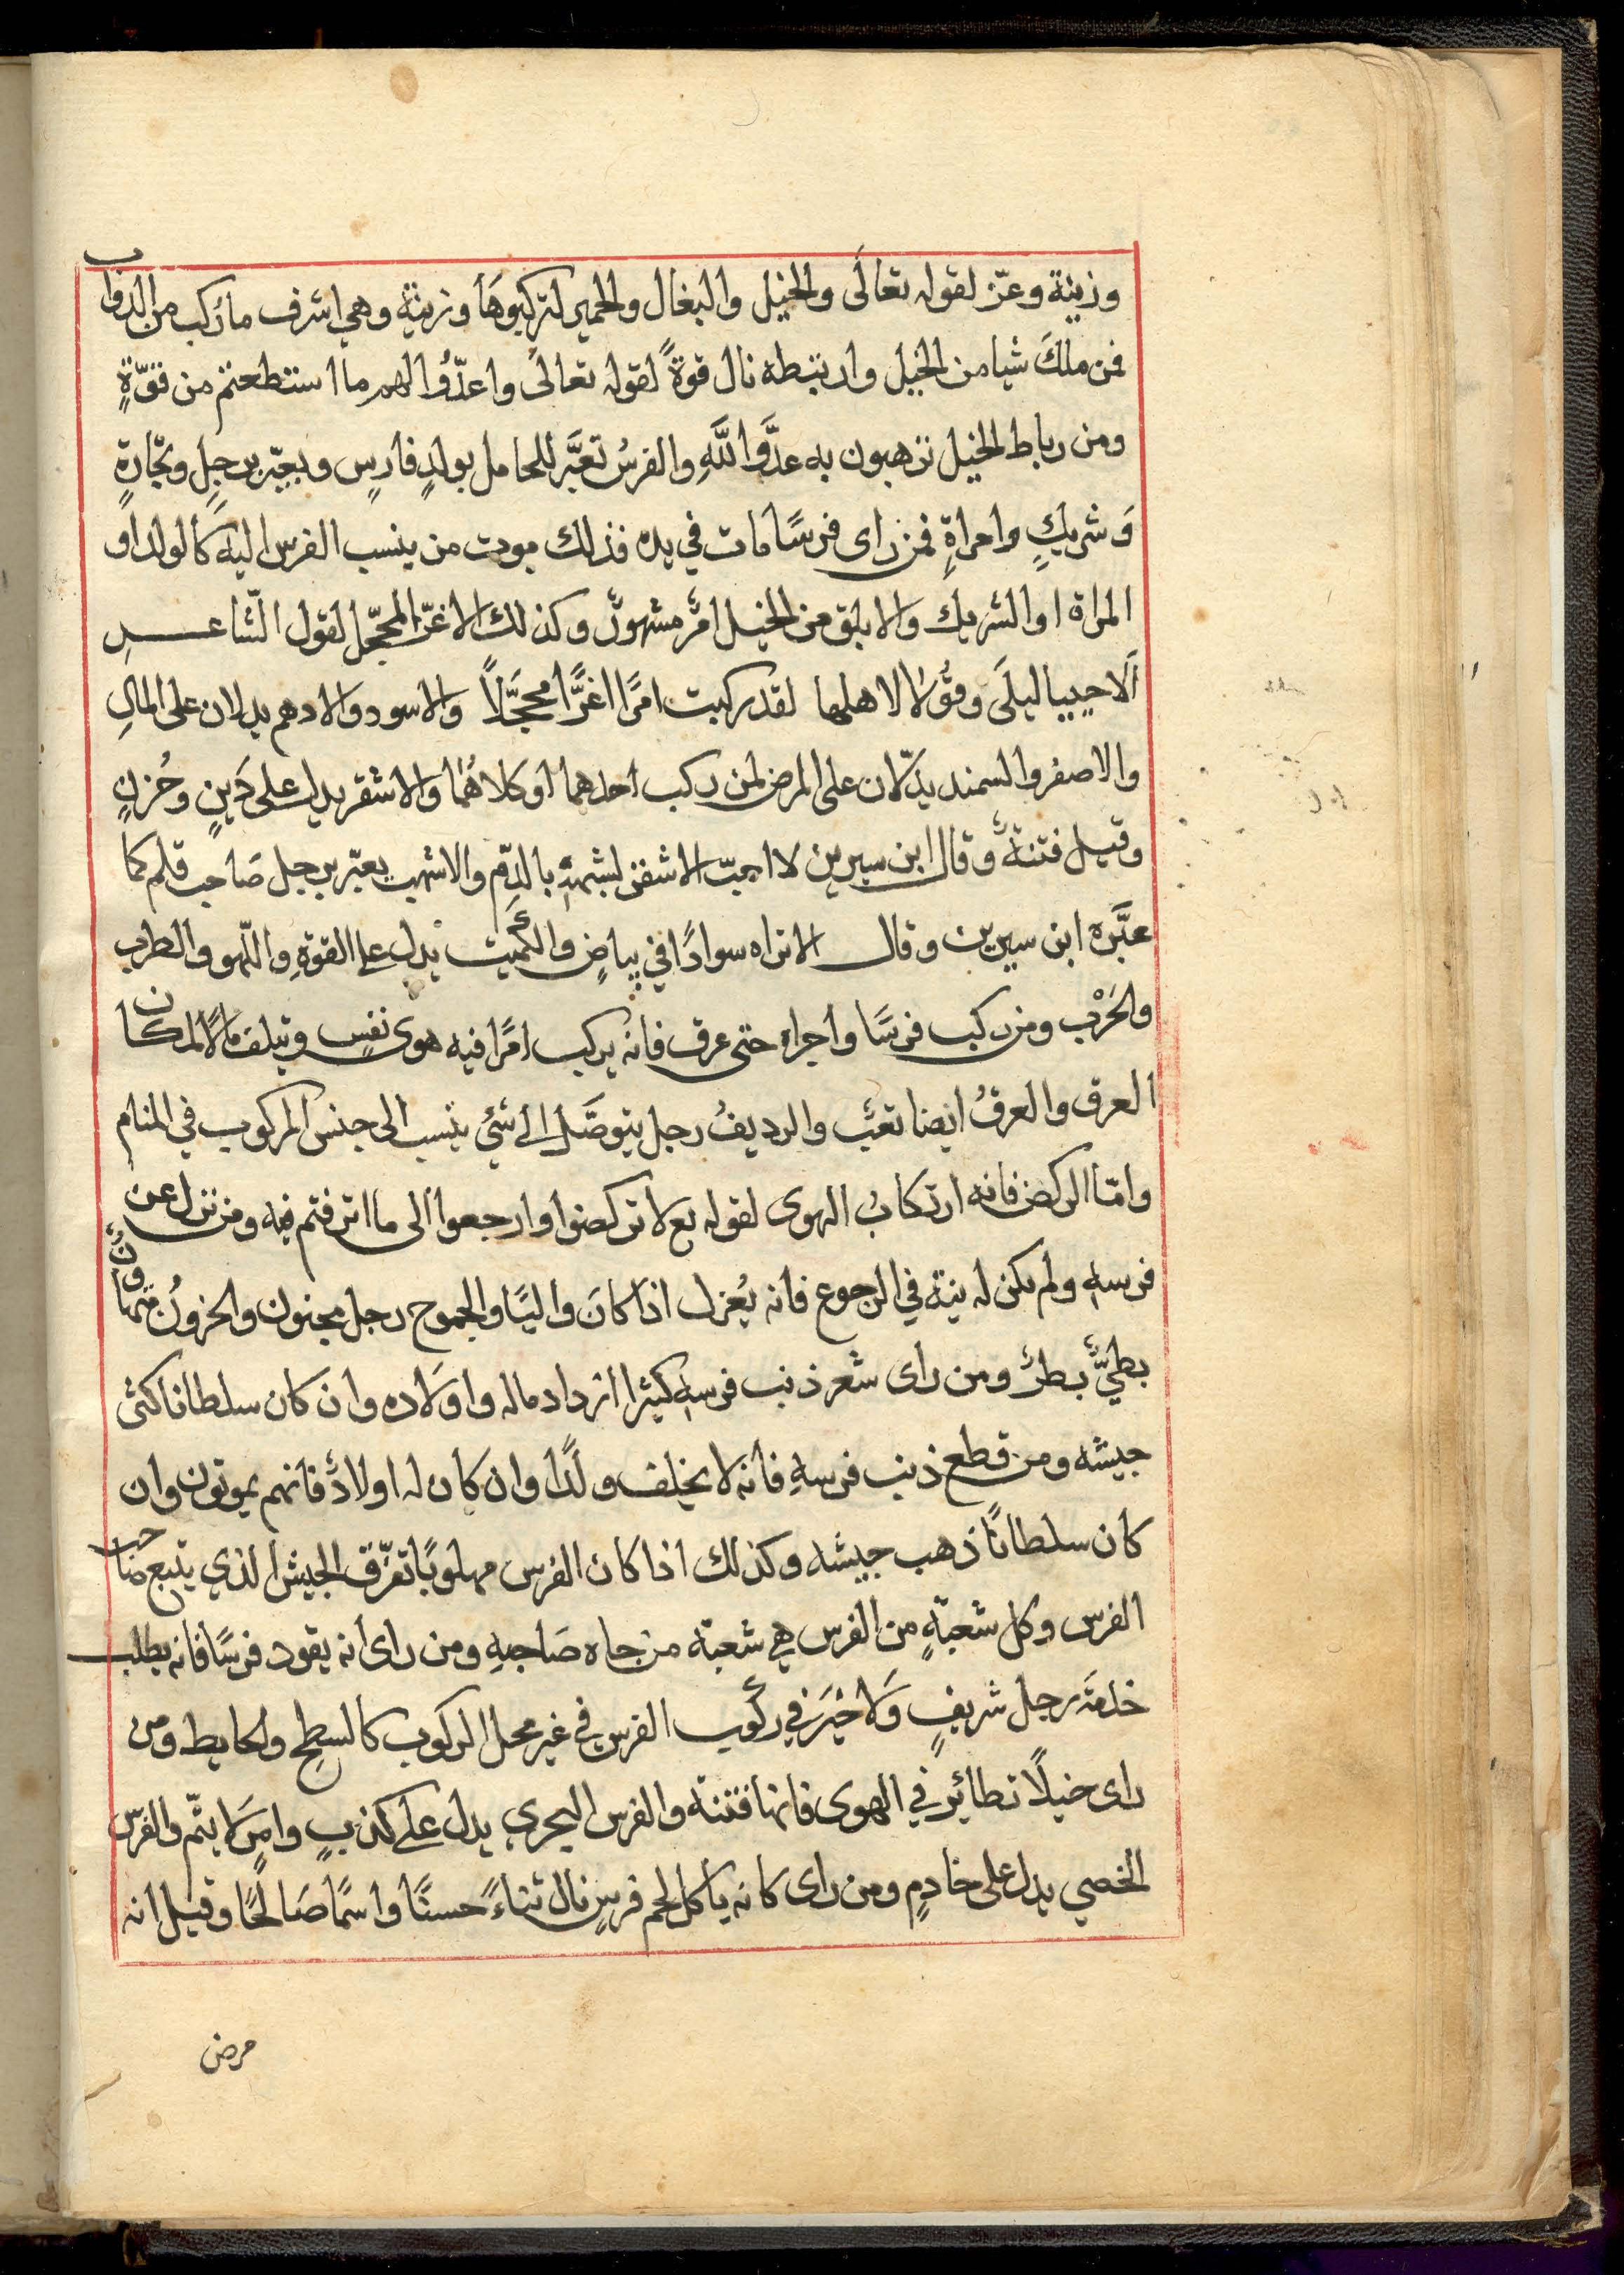 وزينة وعز لقوله تعالَى والخيل والبغال والحمير لتركبوهَا وزينة وهي اشرف ما رُكب من الدواب
فمن ملكَ شيا من الخيل وارتبطه نال قوةً لقوله تعالىٰ واعدّوا لهم ما استطعتم من قوّةٍ
ومن رباط الخيل ترهبون به عدَّو اللَّهِ والفرسُ تعبَّر للحامل بولدٍ فارسٍ ويعبّر برجلٍ وتجارةٍ
وَشريكٍ وامراةٍ فمن راى فرسًا مات في يده فذلك موت من ينسب الفرس اليه كالولد او
المراة او الشريك والابلق من الخيل امرٌ مشهورٌ وكذلك الاغرّ المحجّل لقول الشاعر
اَلا حييا ليلَى وقُولا لاهلها لقد ركبت امرًا اغرًّا محجَّلًا والاسود والادهم يدلان على المالِ
والاصفر والسمند يدّلان على المرض لمن ركب احدهما او كلاهُما والاشقر يدل على دَينٍ وحُزنٍ
وقيل فتنةٌ وقال ابن سيرين لا احبّ الاشقر لشبهه بالدّم والاشهب يعبّر برجل صَاحب قلم كما
عبَّره ابن سيرين وقال الا تراه سوادًا في بياضٍ والكُميت يدل على القوةِ واللّهو والطرب
والحَرْب ومن ركب فرسًا واجراه حتى عرق فانه يركب امرًا فيه هوى نفسٍ وتيلف مالًا لمكان
العرق والعرقُ ايضا تعبٌ والرديفُ رجل يتوصَّل الى شئ ينسب الى جنس المركوب في المنام
وامّا الركض فانه ارتكابُ الهوى لقوله تع لا تركضوا وارجعوا الى ما اترفتم فيه ومن نزل عن
فرسهِ ولم يكن له نية في الرجوع فانه يُعزل اذا كانَ واليًا والجموح رجل مجنون والحرونُ متهاونٌ
بطيٌّ بطرٌ ومن راى شعر ذنب فرسهِ كثيرا ازداد ماله واوَلاده وان كان سلطانا كثى
جيشه ومن قطع ذنب فرسهِ فانه لا يخلف ولدًا وان كان له اولادٌ فانهم يموتون وان
كان سلطانًا ذهب جيشه وكذلك اذا كان الفرس مهلوبًا تفرّق الجيش الذي يتبع صاحب
الفرس وكل شعبةٍ من الفرس هي شعبة من جاه صَاحبهِ ومن راى انه يقود فرسًا فانه يطلب
خدمَة رجل شريفٍ وَلا خيَر في ركُوب الفرس في غير محل الركوب كالسطح والحايط ومن
راى خيلًا تطاير في الهوى فانها فتنة والفرس البحري يدل على كذبٍ وامرٍ لا يتّم والفرس
الخصي يدل على خادمٍ ومن راى كانه ياكل لحم فرسٍ نال ثناءً حسنًا واسمًا صَالحًا وقيل انه
مرض